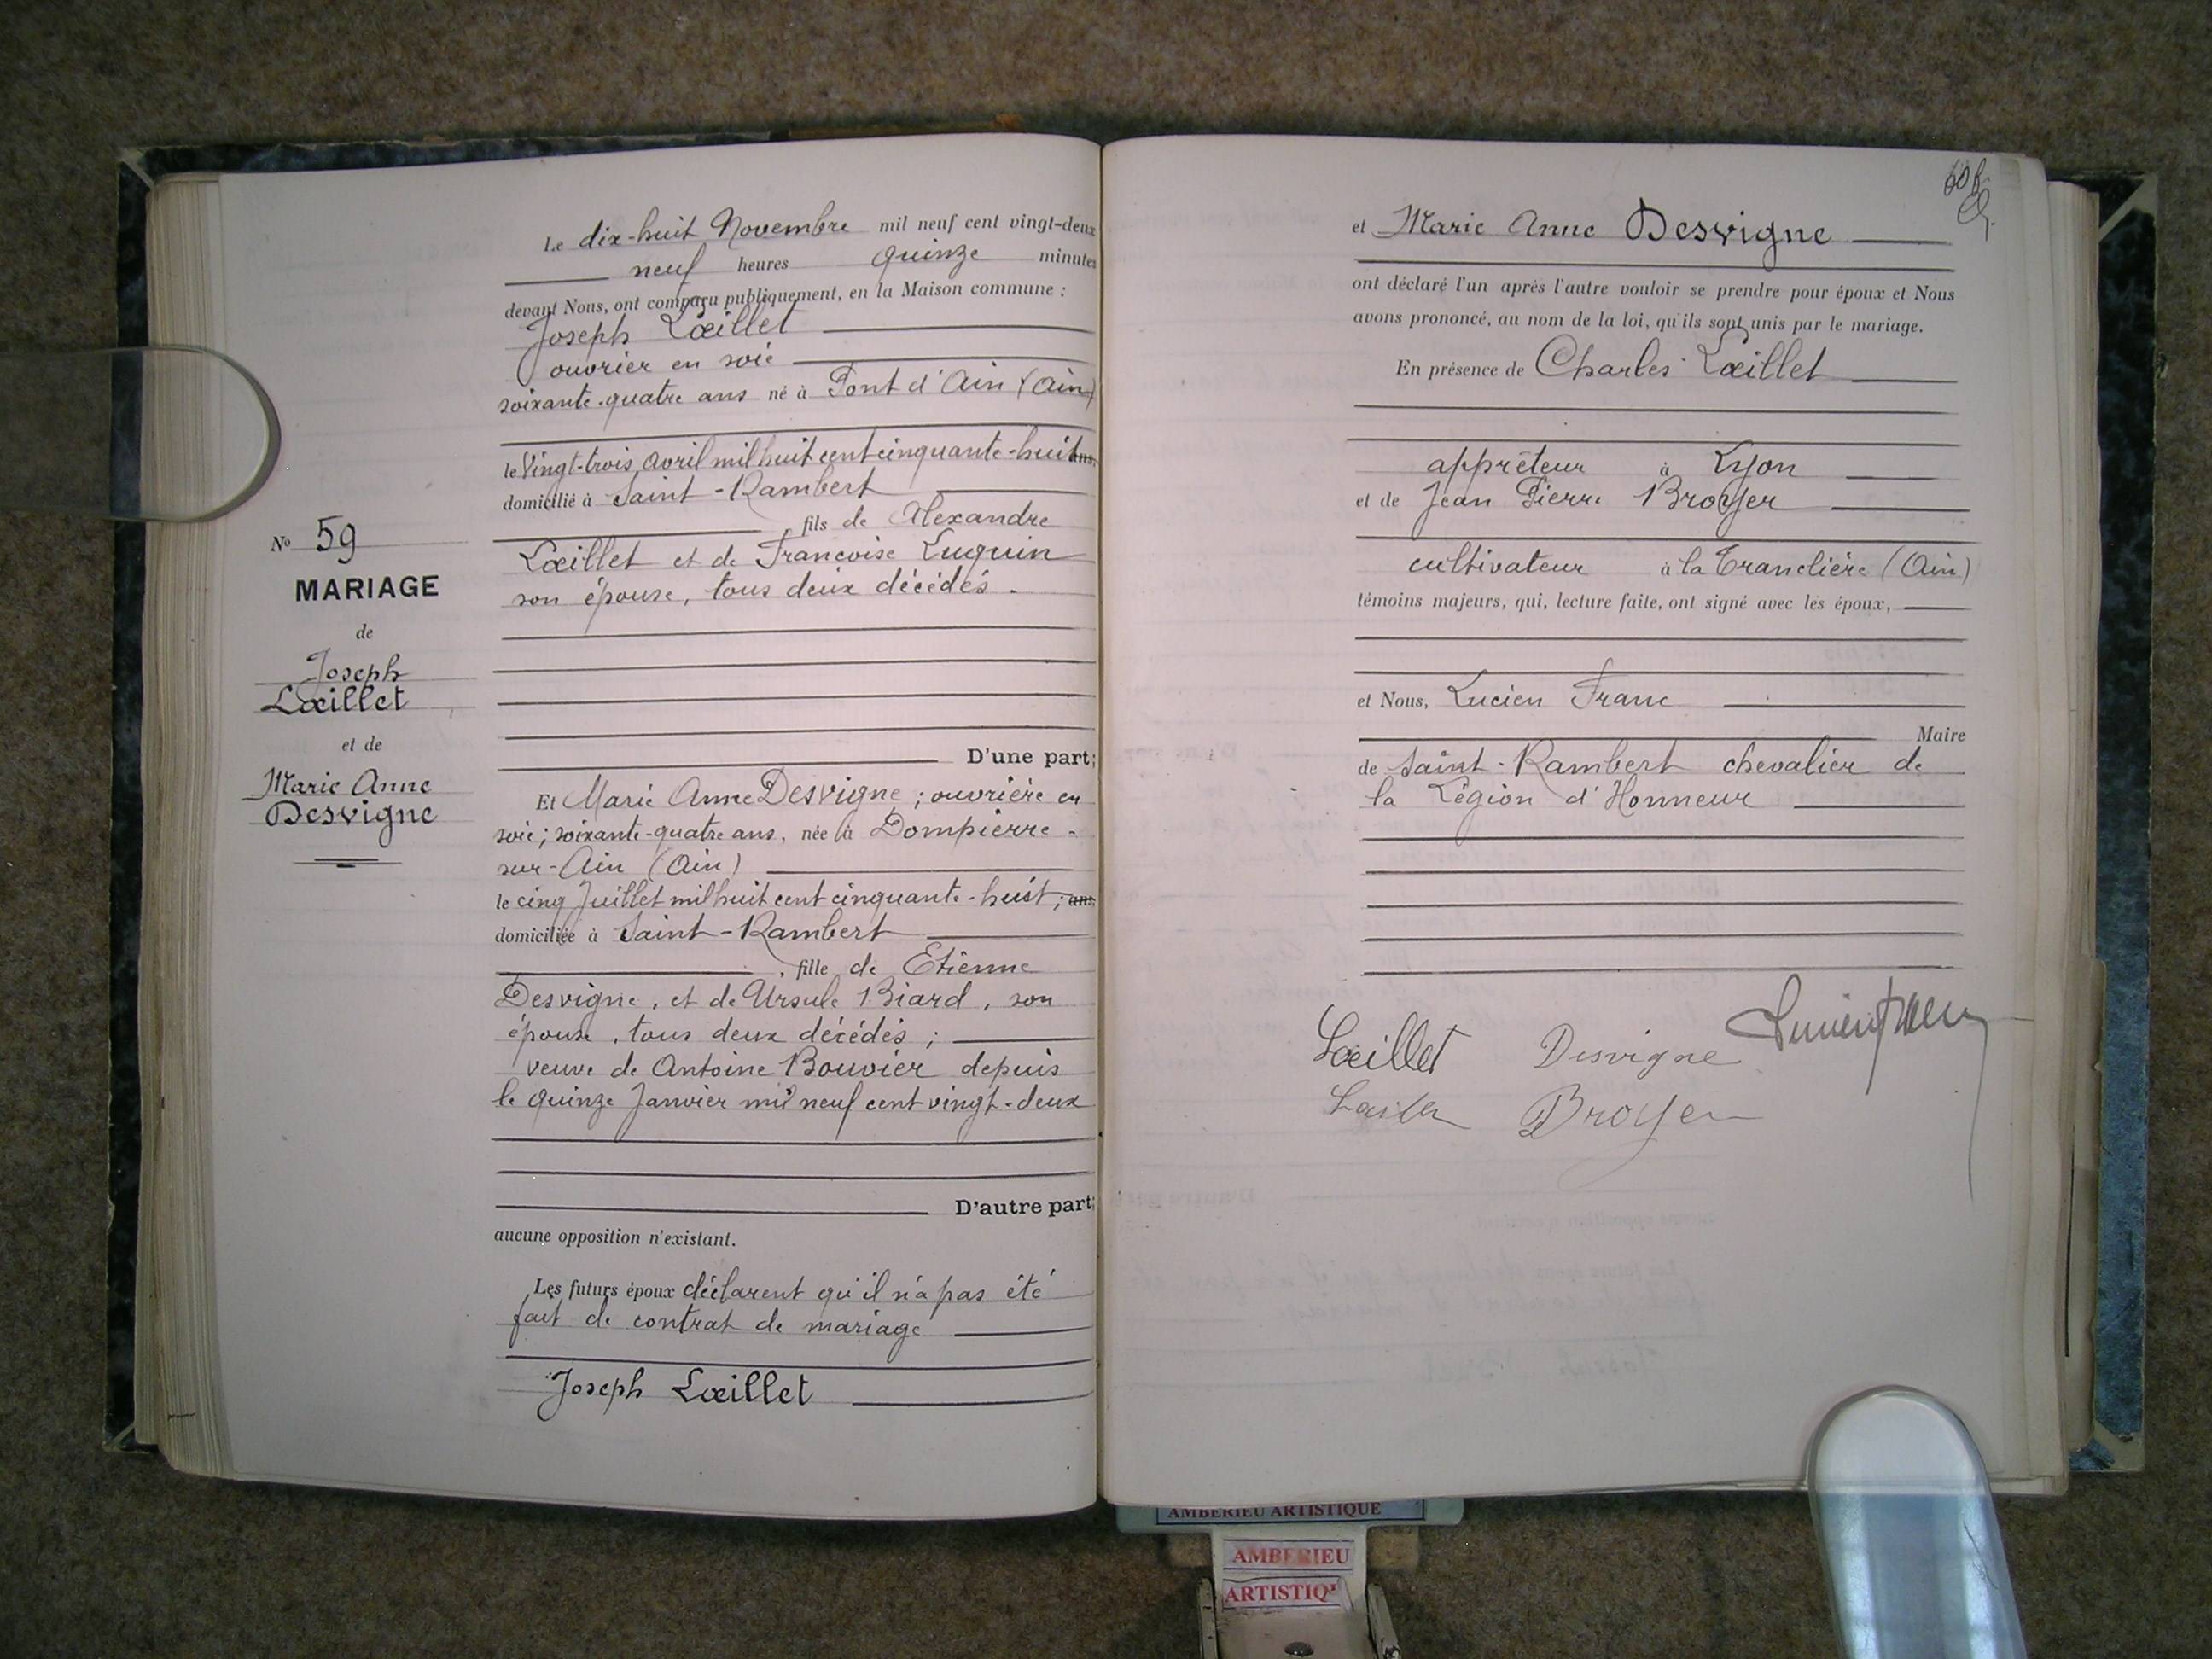 Nº 59
MARIAGE
de
Joseph
Lœillet
et de
Marie Anne
Desvigne
Le dix-huit Novembre mil neuf cent vingt-deux
neuf heures quinze minutes
devant Nous, ont comparu publiquement, en la Maison commune :
Joseph Lœillet
ouvrier en soie
soixante-quatre ans né à Pont d'Ain (Ain)
le vingt-trois avril mil huit cent cinquante-huit ans,
domicilié à Saint-Rambert
, fils de Alexandre
Lœillet et de Françoise Luquin
son épouse, tous deux décédés.
D'une part;
Et Marie Anne Desvigne ; ouvrière en
soie ; soixante-quatre ans, née à Dompierre-
sur-Ain (Ain)
le cinq Juillet mil huit cent cinquante-huit ; ans,
domiciliée à Saint-Rambert
, fille de Etienne
Desvigne, et de Ursule Biard, son
épouse, tous deux décédés ;
veuve de Antoine Bouvier depuis
le quinze Janvier mil neuf cent vingt-deux
D'autre part;
aucune opposition n'existant.
Les futurs époux déclarent qu'il n'a pas été
fait de contrat de mariage
Joseph Lœillet
et Marie Anne Desvigne
ont déclaré l'un après l'autre vouloir se prendre pour époux et Nous
avons prononcé, au nom de la loi, qu'ils sont unis par le mariage.
En présence de Charles Lœillet
apprêteur à Lyon
et de Jean Pierre Broyer
cultivateur à la Tranclière (Ain)
témoins majeurs, qui, lecture faite, ont signé avec les époux,
et Nous, Lucien Franc
Maire
de Saint-Rambert chevalier de
la Légion d'Honneur
Lœillet Desvigne Lucien Franc
Broyer
AMBERIEU ARTISTIQUE
AMBERIEU
ARTISTIQ